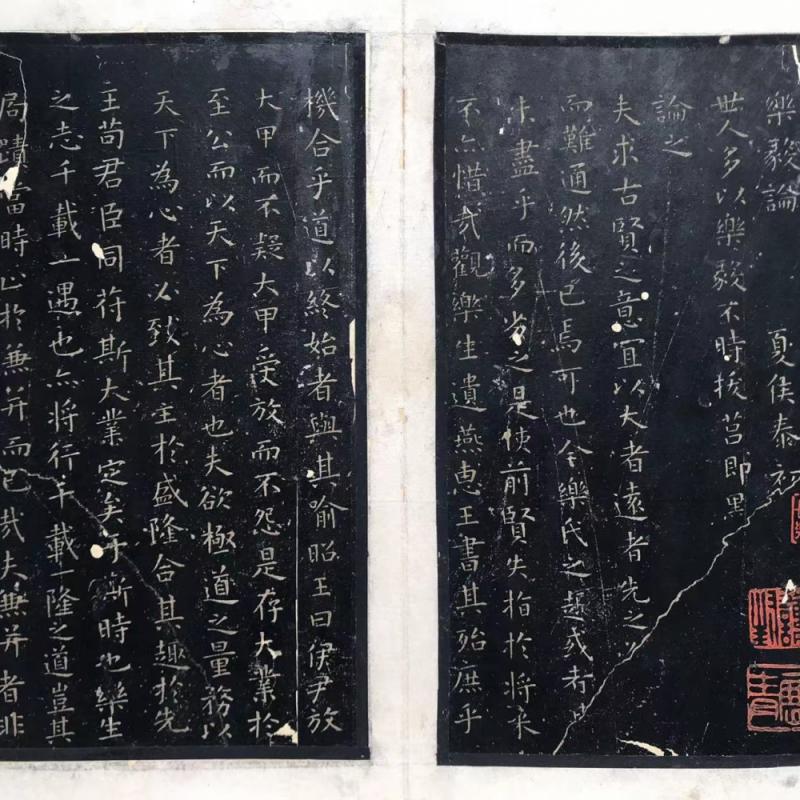 樂毅論 夏侯泰初
世人多以樂毅不時拔莒即墨
論之
夫求古賢之意宜以大者遠者先之
而難通然後已焉可也今樂氏之趣或者其
未盡乎而多劣之是使前賢失指於將來
不亦惜哉觀樂生遺燕惠王書其殆庶乎
機合乎道以終始者與其喻昭王曰伊尹放
大甲而不疑大甲受放而不怨是存大業於
至公而以天下為心者也夫欲極道之量務以
天下為心者必致其主於盛隆合其趣於先
王苟君臣同符斯大業定矣于斯時也樂生
之志千載一遇也亦將行千載一隆之道豈其
局蹟當時止於兼并而已哉夫兼并者非